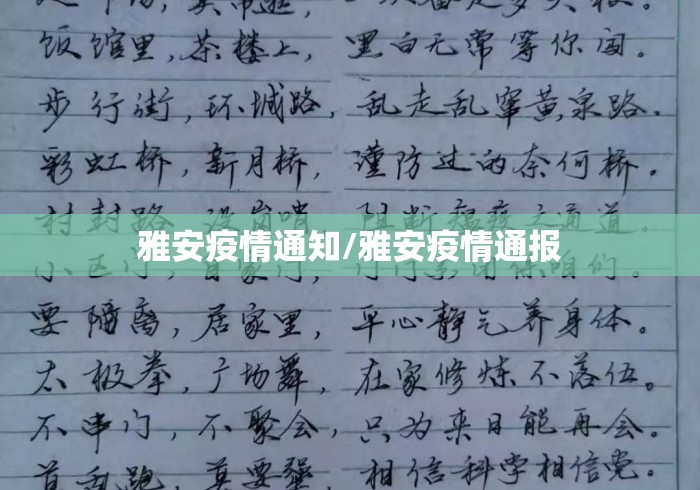 饭馆里,茶楼上, 黑白无常等你闯。
步行街,环城路, 乱走乱窜黄泉路.
彩虹桥,新月桥, 谨防过的奈何桥。
村封路, 设岗哨, 阻断瘟疫交通道。
雅安疫情通知/雅安疫情通报
小区门,自家门,
要隔离,居家里, 平心静气养身体。
太极拳,广场舞, 在家修炼不落伍。
不串门,不聚会,只为来日能再会。
莫要 相信科学相信党。